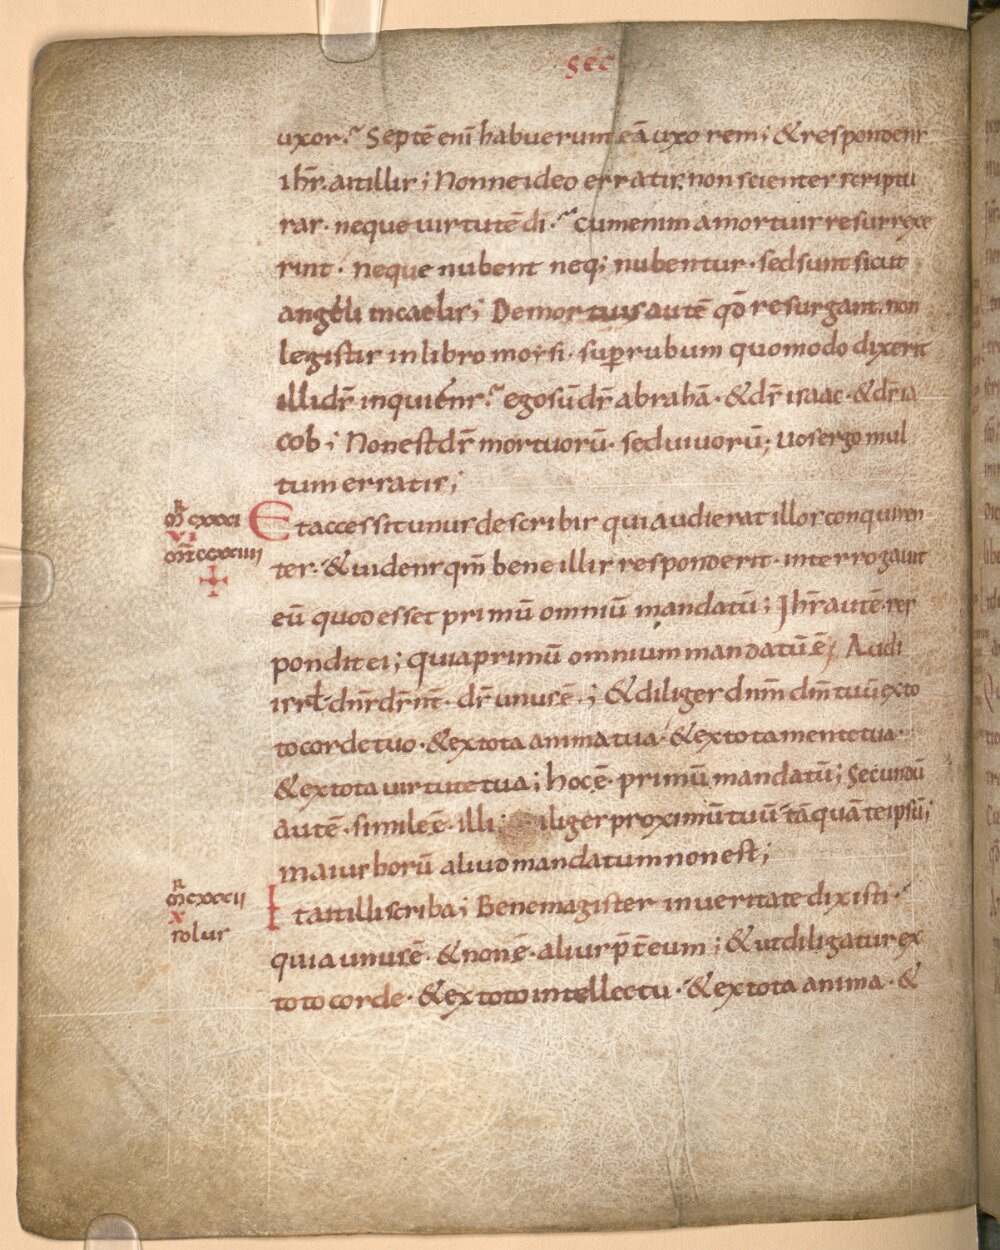 sec
uxor? Septē eni habuerunt eā uxorem; & respondens
ihs. ait illis; Nonne ideo erratis. non scientes scriptu
ras. neque uirtutē di? cum enim a mortuis resurrexe
rint. neque nubent neq; nubentur. sed sunt sicut
angeli in caelis; De mortuis autē qđ resurgant. non
legistis in libro moysi. super rubum quomodo dixerit
illi ds inquiens? ego sū ds abrahā. & ds isaac. & ds ia
cob; Non est ds mortuorū. sed uiuorū; uos ergo mul
tum erratis;
mr cxxxi
vi
mt ccxxiiii
Et accessit unus de scribis qui audierat illos conquiren
tes. & uidens qm̄ bene illis responderit. interrogauit
eū quod esset primū omniū mandatū; Ihs autē. res
pondit ei; quia primū omnium mandatū ē; Audi
isrł dns ds nt̄. ds unus ē.; & diliges dnm̄ dm̄ tuū ex to
to corde tuo. & ex tota anima tua. & ex tota mente tua.
& ex tota uirtute tua; hoc ē. primū mandatū; Secundū
autē. simile ē. illi; iliges proximū tuū tāquā te ipsū;
maius horū aliud mandatum non est;
mr cxxxii
x
solus
It ait illi scriba; Bene magister in ueritate dixisti.
quia unus ē. & non ē. alius p̄t eum; & ut diligatur ex
toto corde. & ex toto intellectu. & ex tota anima. &